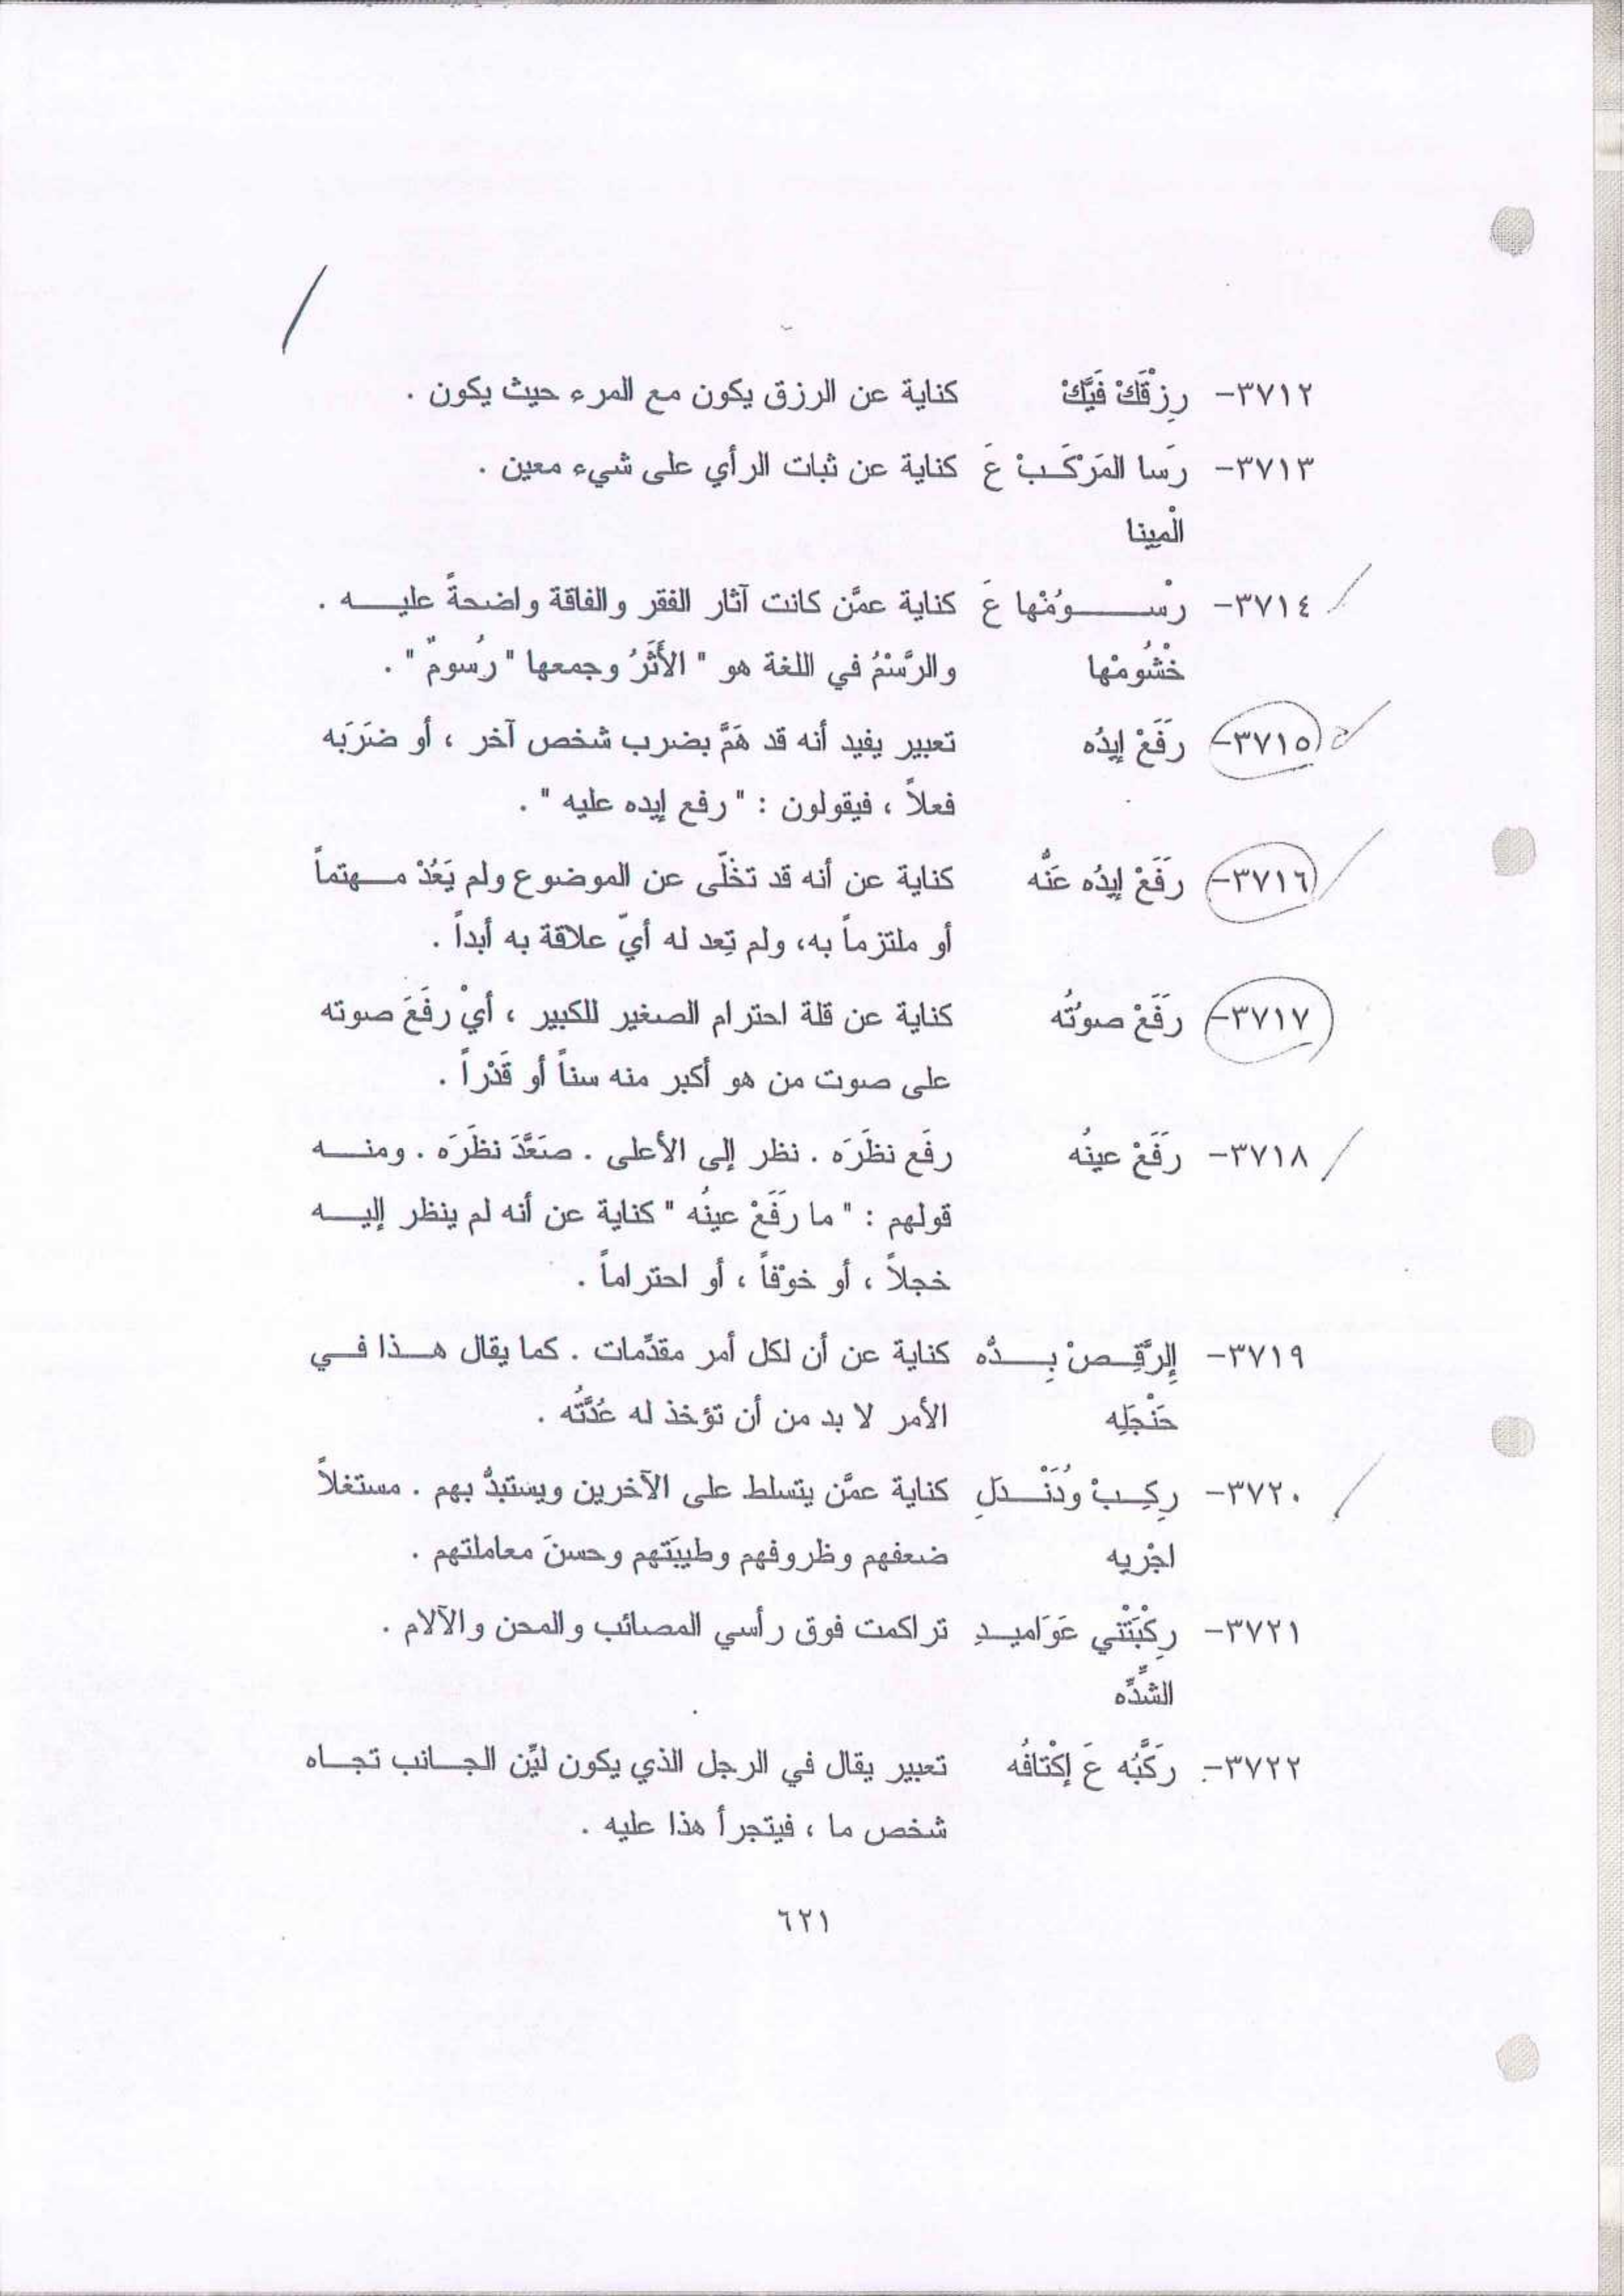 ٣٧١٢- رِزْقَكْ فَيَّكْ كناية عن الرزق يكون مع المرء حيث يكون .
٣٧١٣- رَسا المَرْكَـبْ عَ كناية عن ثبات الرأي على شيء معين .
الْمينا
٣٧١٤- رْســـومْها عَ كناية عمَّن كانت آثار الفقر والفاقة واضحةً عليـــه .
خْشُومْها والرَّسْمُ في اللغة هو " الأَثَرُ وجمعها " رُسومٌ " .
٣٧١٥- رَفَعْ إيدُه تعبير يفيد أنه قد هَمَّ بضرب شخص آخر ، أو ضَرَبَه
فعلاً ، فيقولون : " رفع إيده عليه " .
٣٧١٦- رَفَعْ إيدُه عَنُّه كناية عن أنه قد تخلّى عن الموضوع ولم يَعُدْ مـهتماً
أو ملتزماً به، ولم تِعد له أيّ علاقة به أبداً .
٣٧١٧- رَفَعْ صوتُه كناية عن قلة احترام الصغير للكبير ، أيْ رفَعَ صوته
على صوت من هو أكبر منه سناً أو قَدْراً .
٣٧١٨- رَفَعْ عينُه رفَع نظَرَه . نظر إلى الأعلى . صَعَّدَ نظَرَه . ومنـــه
قولهم : " ما رَفَعْ عينُه " كناية عن أنه لم ينظر إليـــه
خجلاً ، أو خوْفاً ، أو احتراماً .
٣٧١٩- إلرَّقِـصْ بِـــدُّه كناية عن أن لكل أمر مقدِّمات . كما يقال هـــذا فـــي
حَنْجَلِه الأمر لا بد من أن تؤخذ له عُدَّتُه .
٣٧٢٠- رِكِـبْ ودَنْـدَلِ كناية عمَّن يتسلط على الآخرين ويستبدُّ بهم . مستغلاً
اجْريه ضعفهم وظروفهم وطيبَتهم وحسنَ معاملتهم .
٣٧٢١- رِكْبَتْني عَوَاميـدِ تراكمت فوق رأسي المصائب والمحن والآلام .
الشدِّه
٣٧٢٢- رَكَّبُه عَ إكْتافُه تعبير يقال في الرجل الذي يكون ليِّن الجـانب تجـاه
شخص ما ، فيتجرأ هذا عليه .
٦٢١